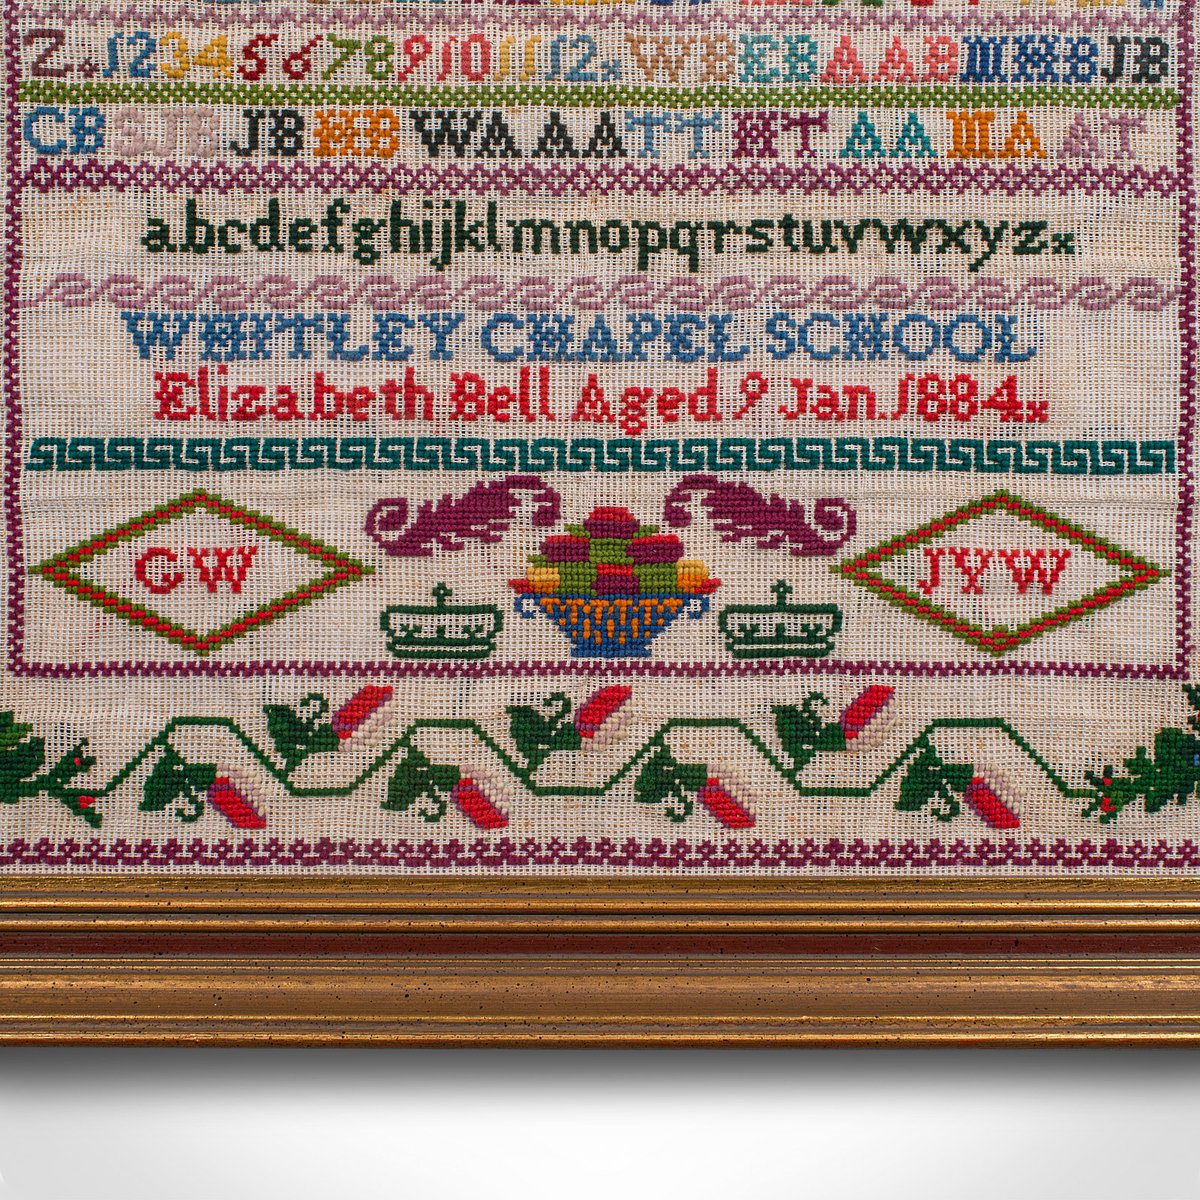 Z. 1 2 3 4 5 6 7 8 9 10 11 12x WB EB AAB MHB JB
CB EJB JB MB WA AA TT MT AA MA AT
abcdefghijklmnopqrstuvwxyzx
WHITLEY CHAPEL SCHOOL
Elizabeth Bell Aged 9 Jan 1884x
GW JYW